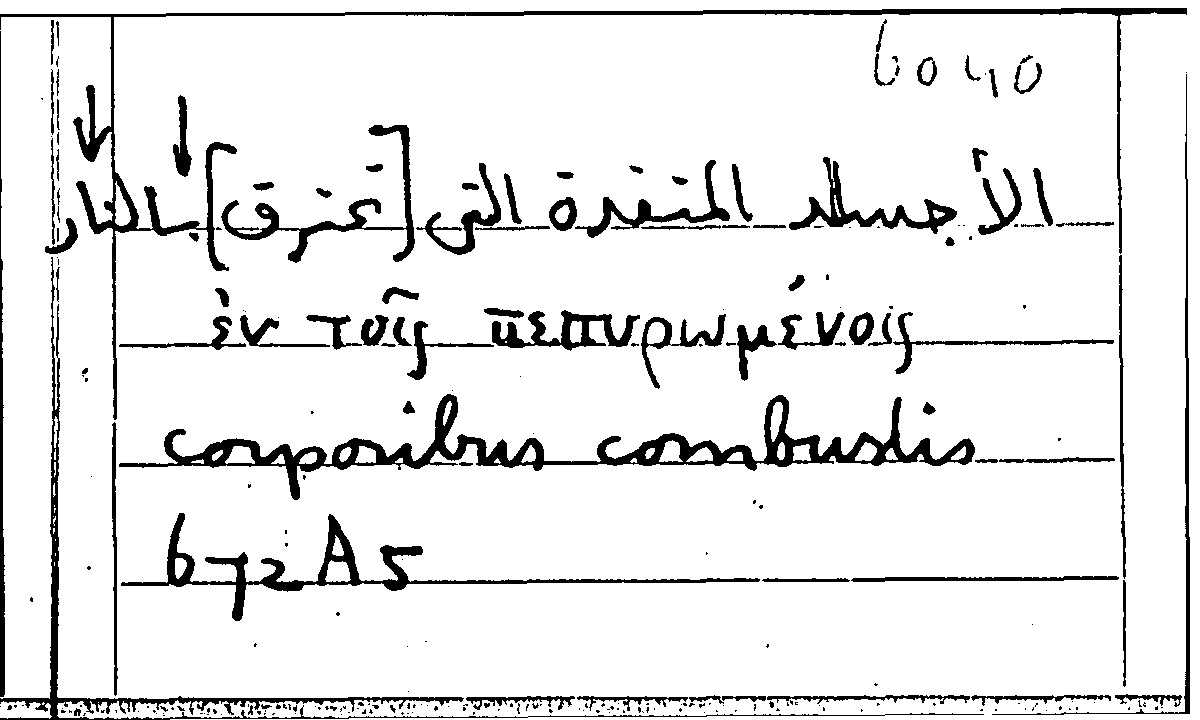 6040
الأجساد المنفردة التي [تحترق] بالنار
ἐν τοῖς πεπυρωμένοις
corporibus combustis
672 A 5